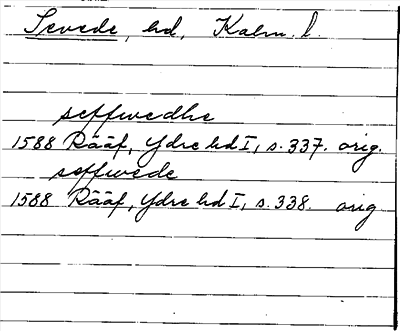 Sevede, hd, Kalm. l.
seffwedhe
1588 Rääf, Ydre hd I, s. 337. orig.
seffwede
1588 Rääf, Ydre hd I, s. 338. orig